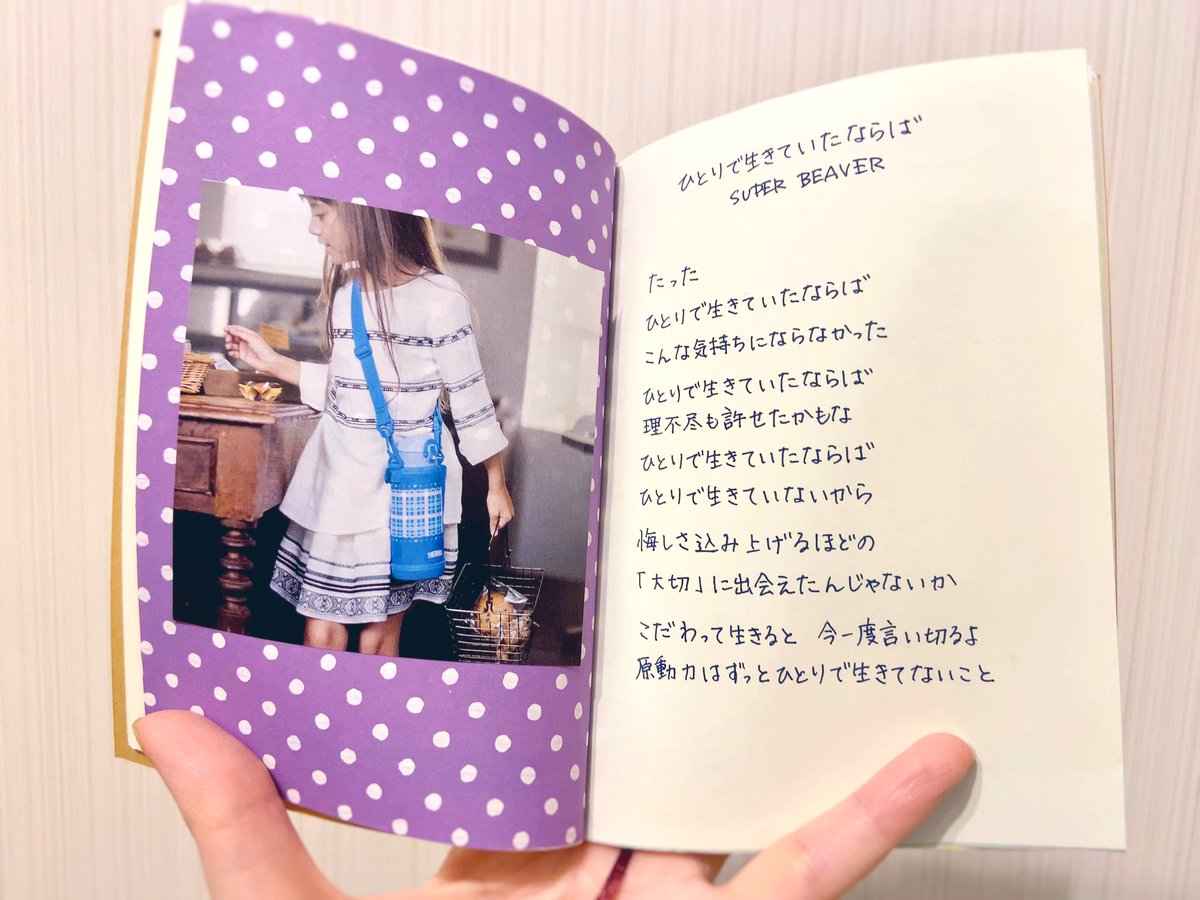 ひとりで生きていたならば
SUPER BEAVER
たった
ひとりで生きていたならば
こんな気持ちにならなかった
ひとりで生きていたならば
理不尽も許せたかもな
ひとりで生きていたならば
ひとりで生きていないから
悔しさ込み上げるほどの
「大切」に出会えたんじゃないか
こだわって生きると 今一度言い切るよ
原動力はずっとひとりで生きてないこと
THERMOS